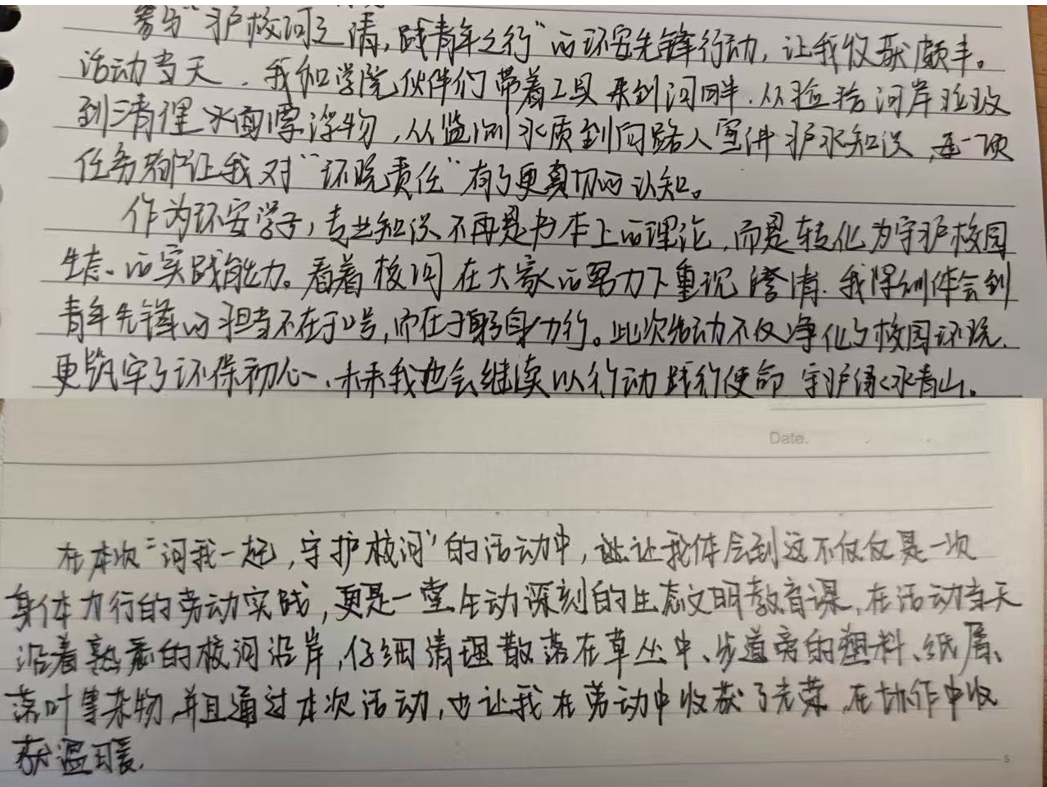 参与“护校河之清,践青年之行”的环安先锋行动,让我收获颇丰。
活动当天,我和学院伙伴们带着工具来到河畔.从捡拾河岸垃圾
到清理水面漂浮物,从监测水质到向路人宣讲护水知识,每一项
任务都让我对“环境责任”有了更真切的认知。
作为环安学子,专业知识不再是书本上的理论,而是转化为守护校园
生态的实践能力。看着校河在大家的努力下重现澄清.我深刻体会到
青年先锋的担当不在于口号,而在于躬身力行。此次活动不仅净化了校园环境.
更筑牢了环保初心、未来我也会继续以行动践行使命 守护绿水青山。
Date.
在本次“河我一起,守护校河”的活动中,让我体会到这不仅仅是一次
身体力行的劳动实践,更是一堂生动深刻的生态文明教育课,在活动当天
沿着熟悉的校河沿岸,仔细清理散落在草丛中、步道旁的塑料、纸屑、
落叶等杂物,并且通过本次活动,也让我在劳动中收获了光荣,在协作中收
获温暖.
5